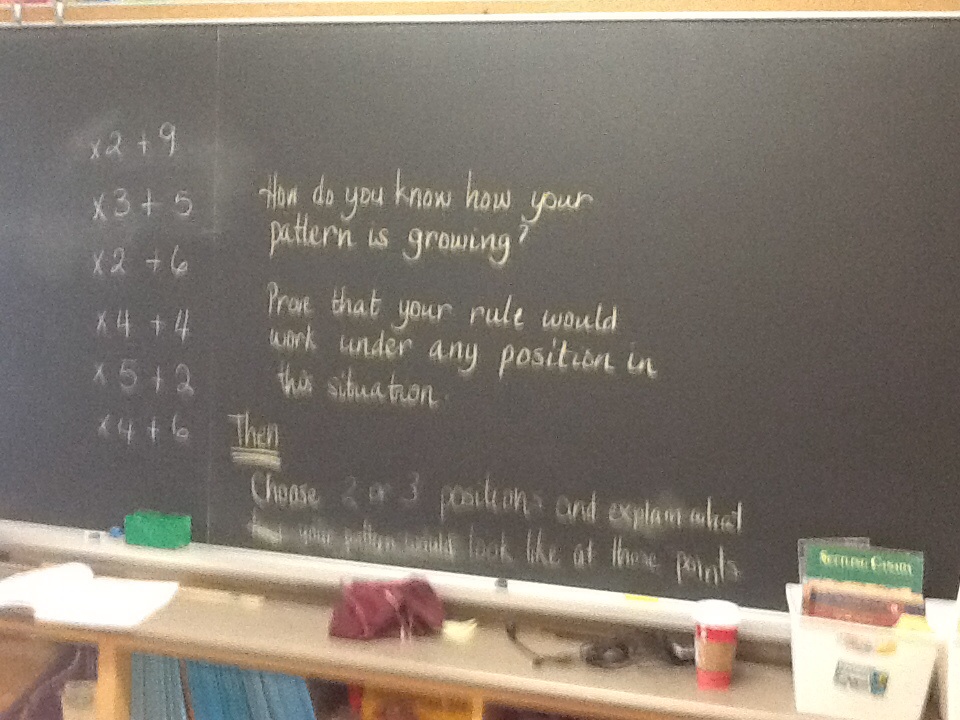 x2 + 9
x3 + 5
x2 + 6
x4 + 4
x5 + 2
x4 + 6
How do you know how your
pattern is growing?
Prove that your rule would
work under any position in
this situation.
Then
Choose 2 or 3 positions and explain what
your pattern would look like at these points